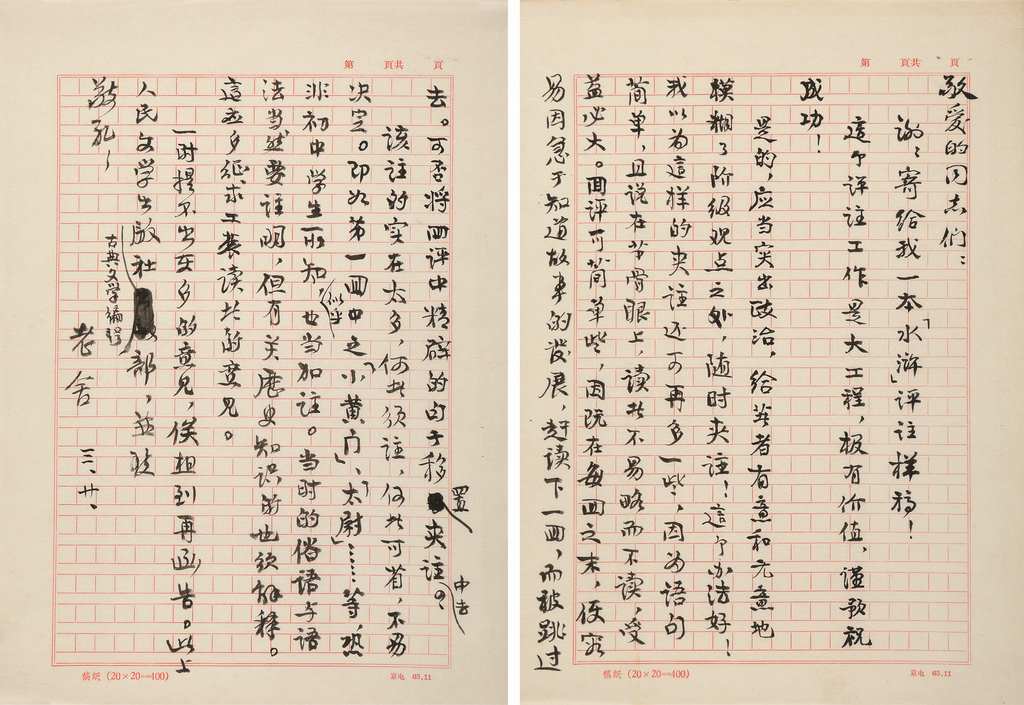 第 頁共 頁
敬爱的同志们：
谢谢寄给我一本「水浒」评注样稿！
这个评注工作是大工程，极有价值，谨预祝
成功！
是的，应当突出政治，给其者有意和无意地
模糊了阶级观点之处，随时夹注！这个办法好！
我以为这样的夹注还可再多一些，因为语句
简单，且说在节骨眼上，读者不易略而不读，受
益必大。回评可简单些，因既在每回之末，便容
易因急于知道故事的发展，赶读下一回，而被跳过
稿纸 (20×20=400)
京电 63.11
第 頁共 頁
去。可否将回评中精辟的句子移置夹注中去
该注的实在太多，何者须注，何者可省，不易
决定。即如第一回中之「小黄门」、「太尉」……等，恐
非初中学生所知，似乎也当加注。当时的俗语与语
法当然要注明，但有关历史知识的也须解释。
这应多征求工农读者的意见。
一时提不出更多的意见，俟想到再函告。此上
人民文学出版社古典文学编辑部，并致
敬礼！
老舍 三、廿、
稿纸 (20×20=400)
京电 63.11